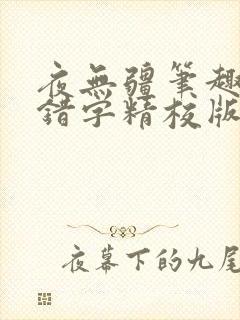 夜無疆筆趣
錯字精校版
夜幕下的九尾